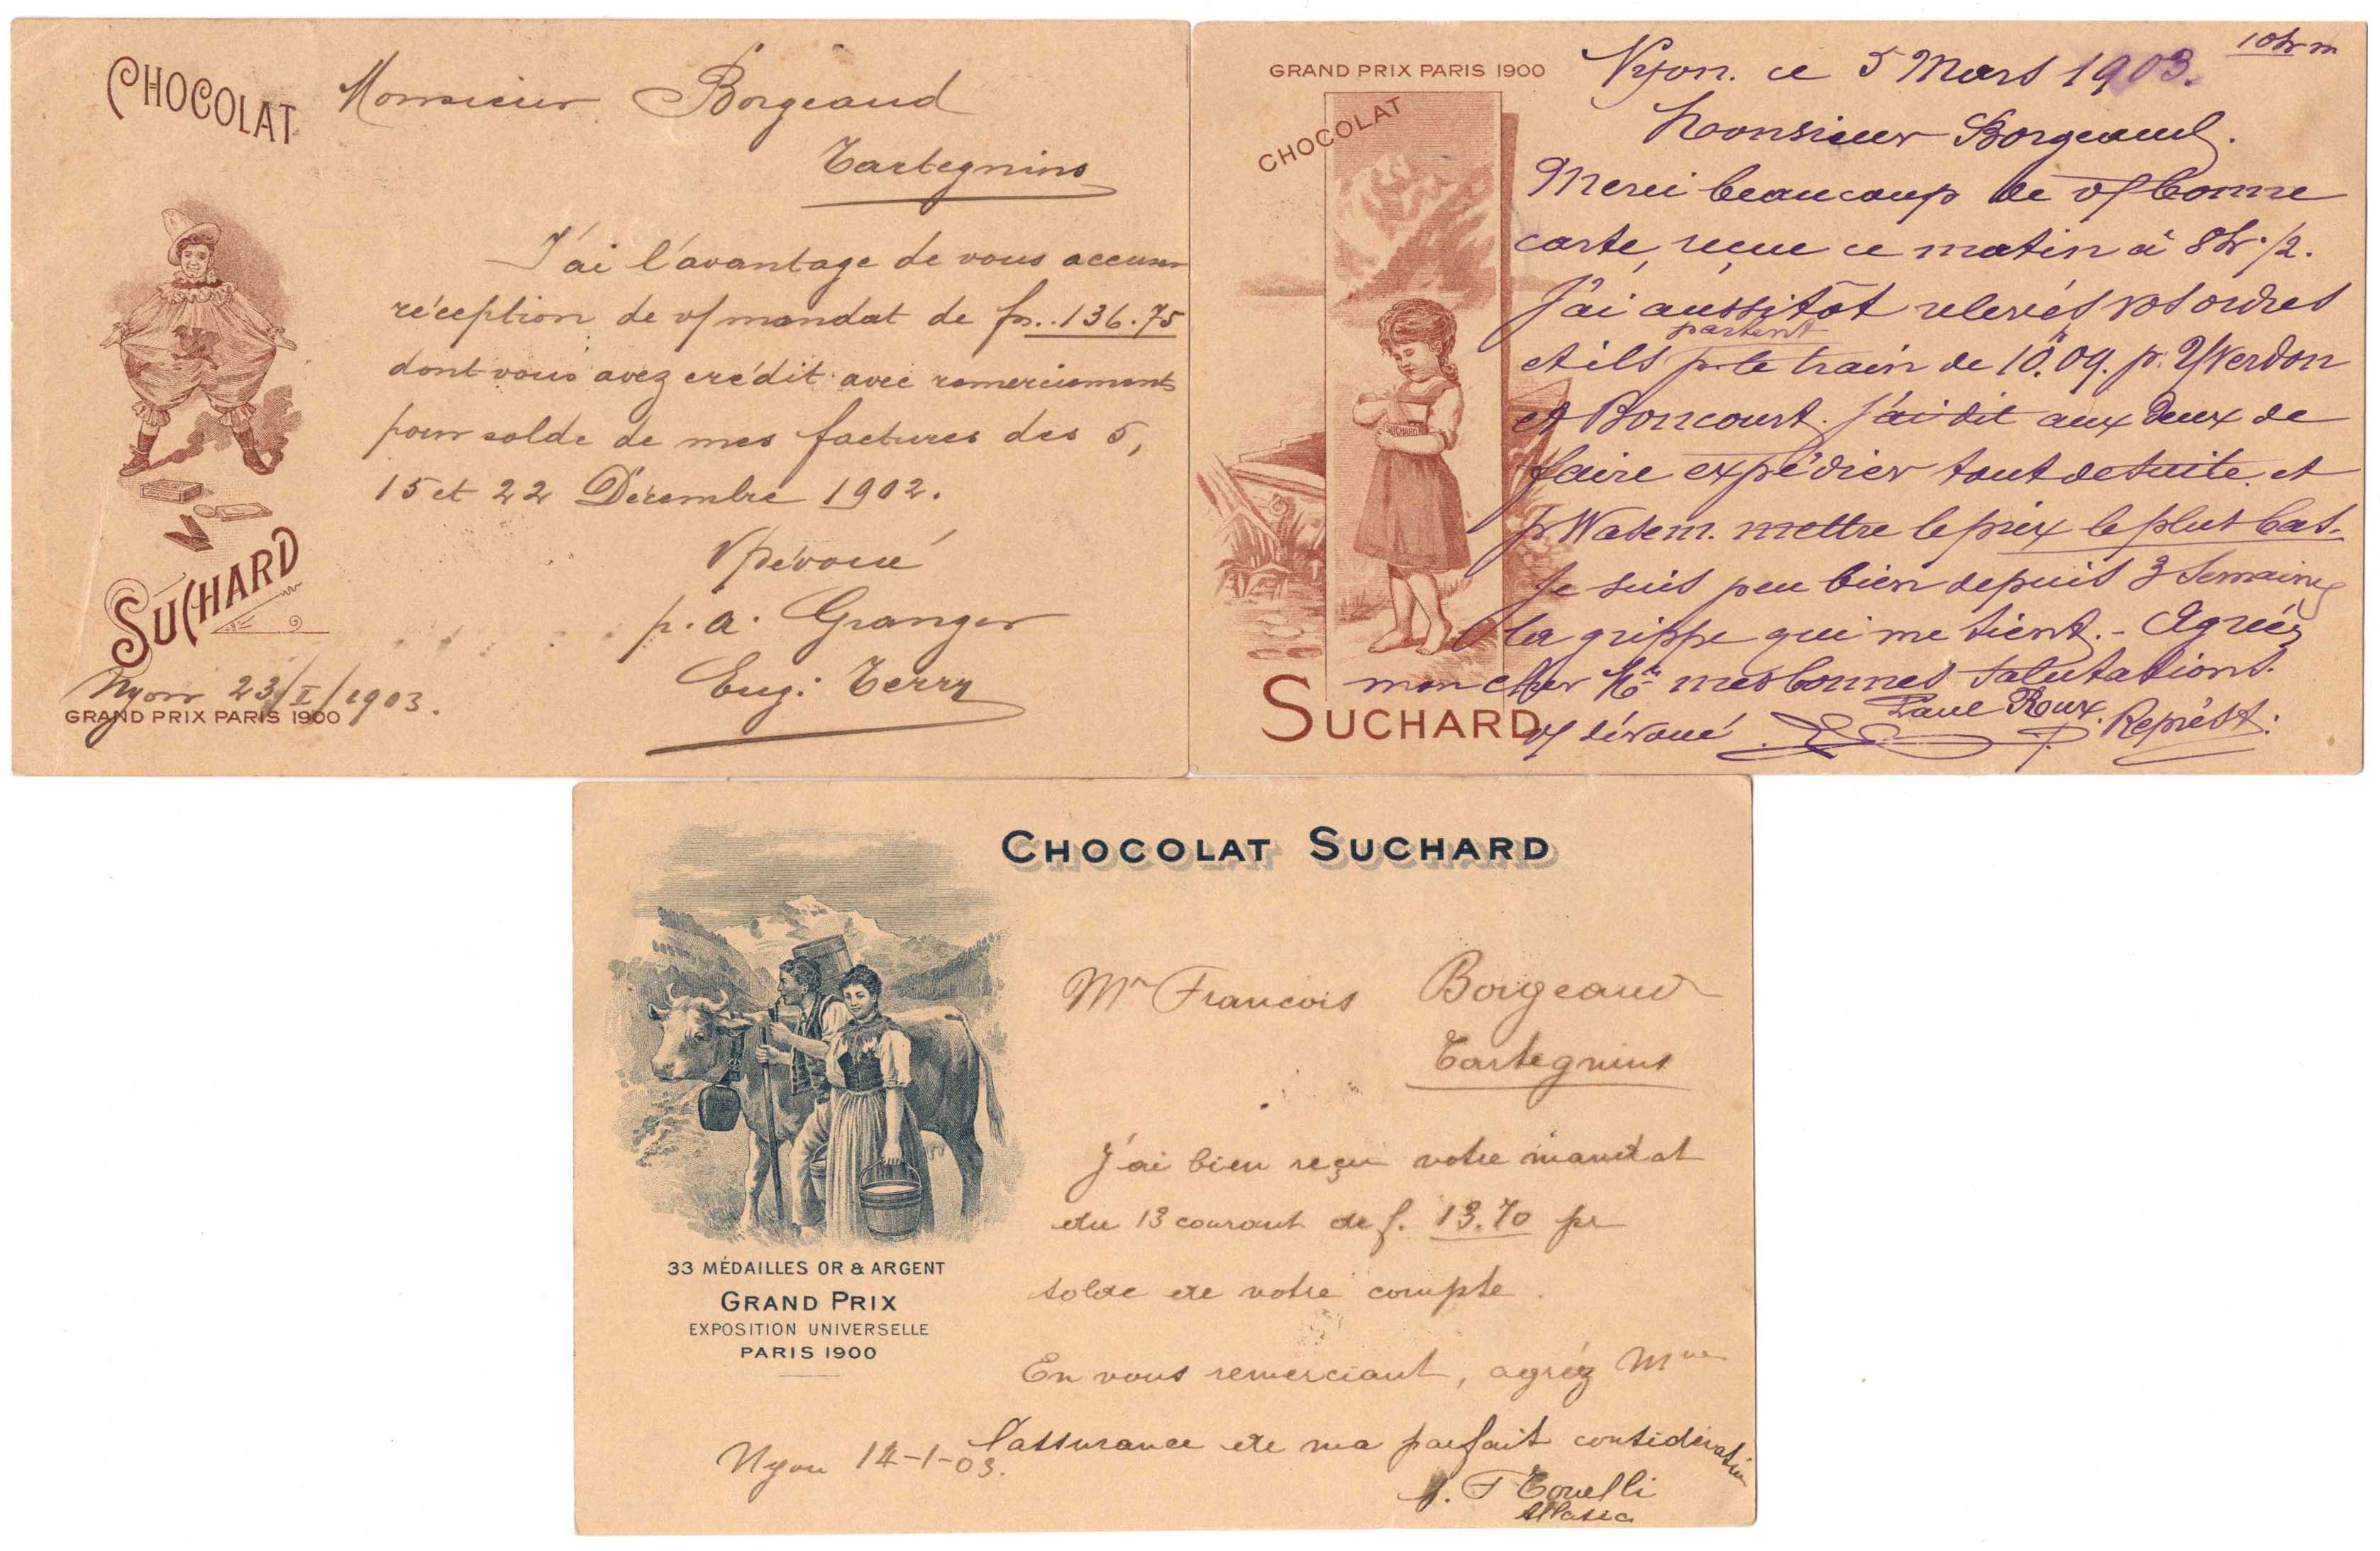 CHOCOLAT
Monsieur Borgeaud
Tartegnins
J'ai l'avantage de vous accuser
réception de v/ mandat de fr.. 136.75
dont vous avez crédit avec remerciements
pour solde de mes factures des 5,
15 et 22 Décembre 1902.
V/ dévoué
p. a. Granger
Eug: Terry
SUCHARD
Nyon 23/I/1903.
GRAND PRIX PARIS 1900
GRAND PRIX PARIS 1900
Nyon. ce 5 Mars 1903. 10 hr m
CHOCOLAT
Monsieur Borgeaud.
Merci beaucoup de v/ bonne
carte, reçue ce matin à 8 hr. 1/2.
J'ai aussitôt relevés vos ordres
partent
et ils p. le train de 10.09. p. Yverdon
et Boncourt. J'ai dit aux deux de
faire expédier tout de suite et
p mettre le prix le plus bas.
Je suis peu bien depuis 3 Semaines
la grippe qui me tient. - Agréez
mon cher Mr mes bonnes Salutations.
v/ dévoué Paul Roux. Représt.
SUCHARD
SUCHARD
CHOCOLAT SUCHARD
Mr Francois Borgeaud
Tartegnins
J'ai bien reçu votre mandat
du 13 courant de f. 13.70 pr
solde de votre compte.
En vous remerciant, agréz
l'assurance de ma parfait considération
Nyon 14-1-03.
33 MÉDAILLES OR & ARGENT
GRAND PRIX
EXPOSITION UNIVERSELLE
PARIS 1900